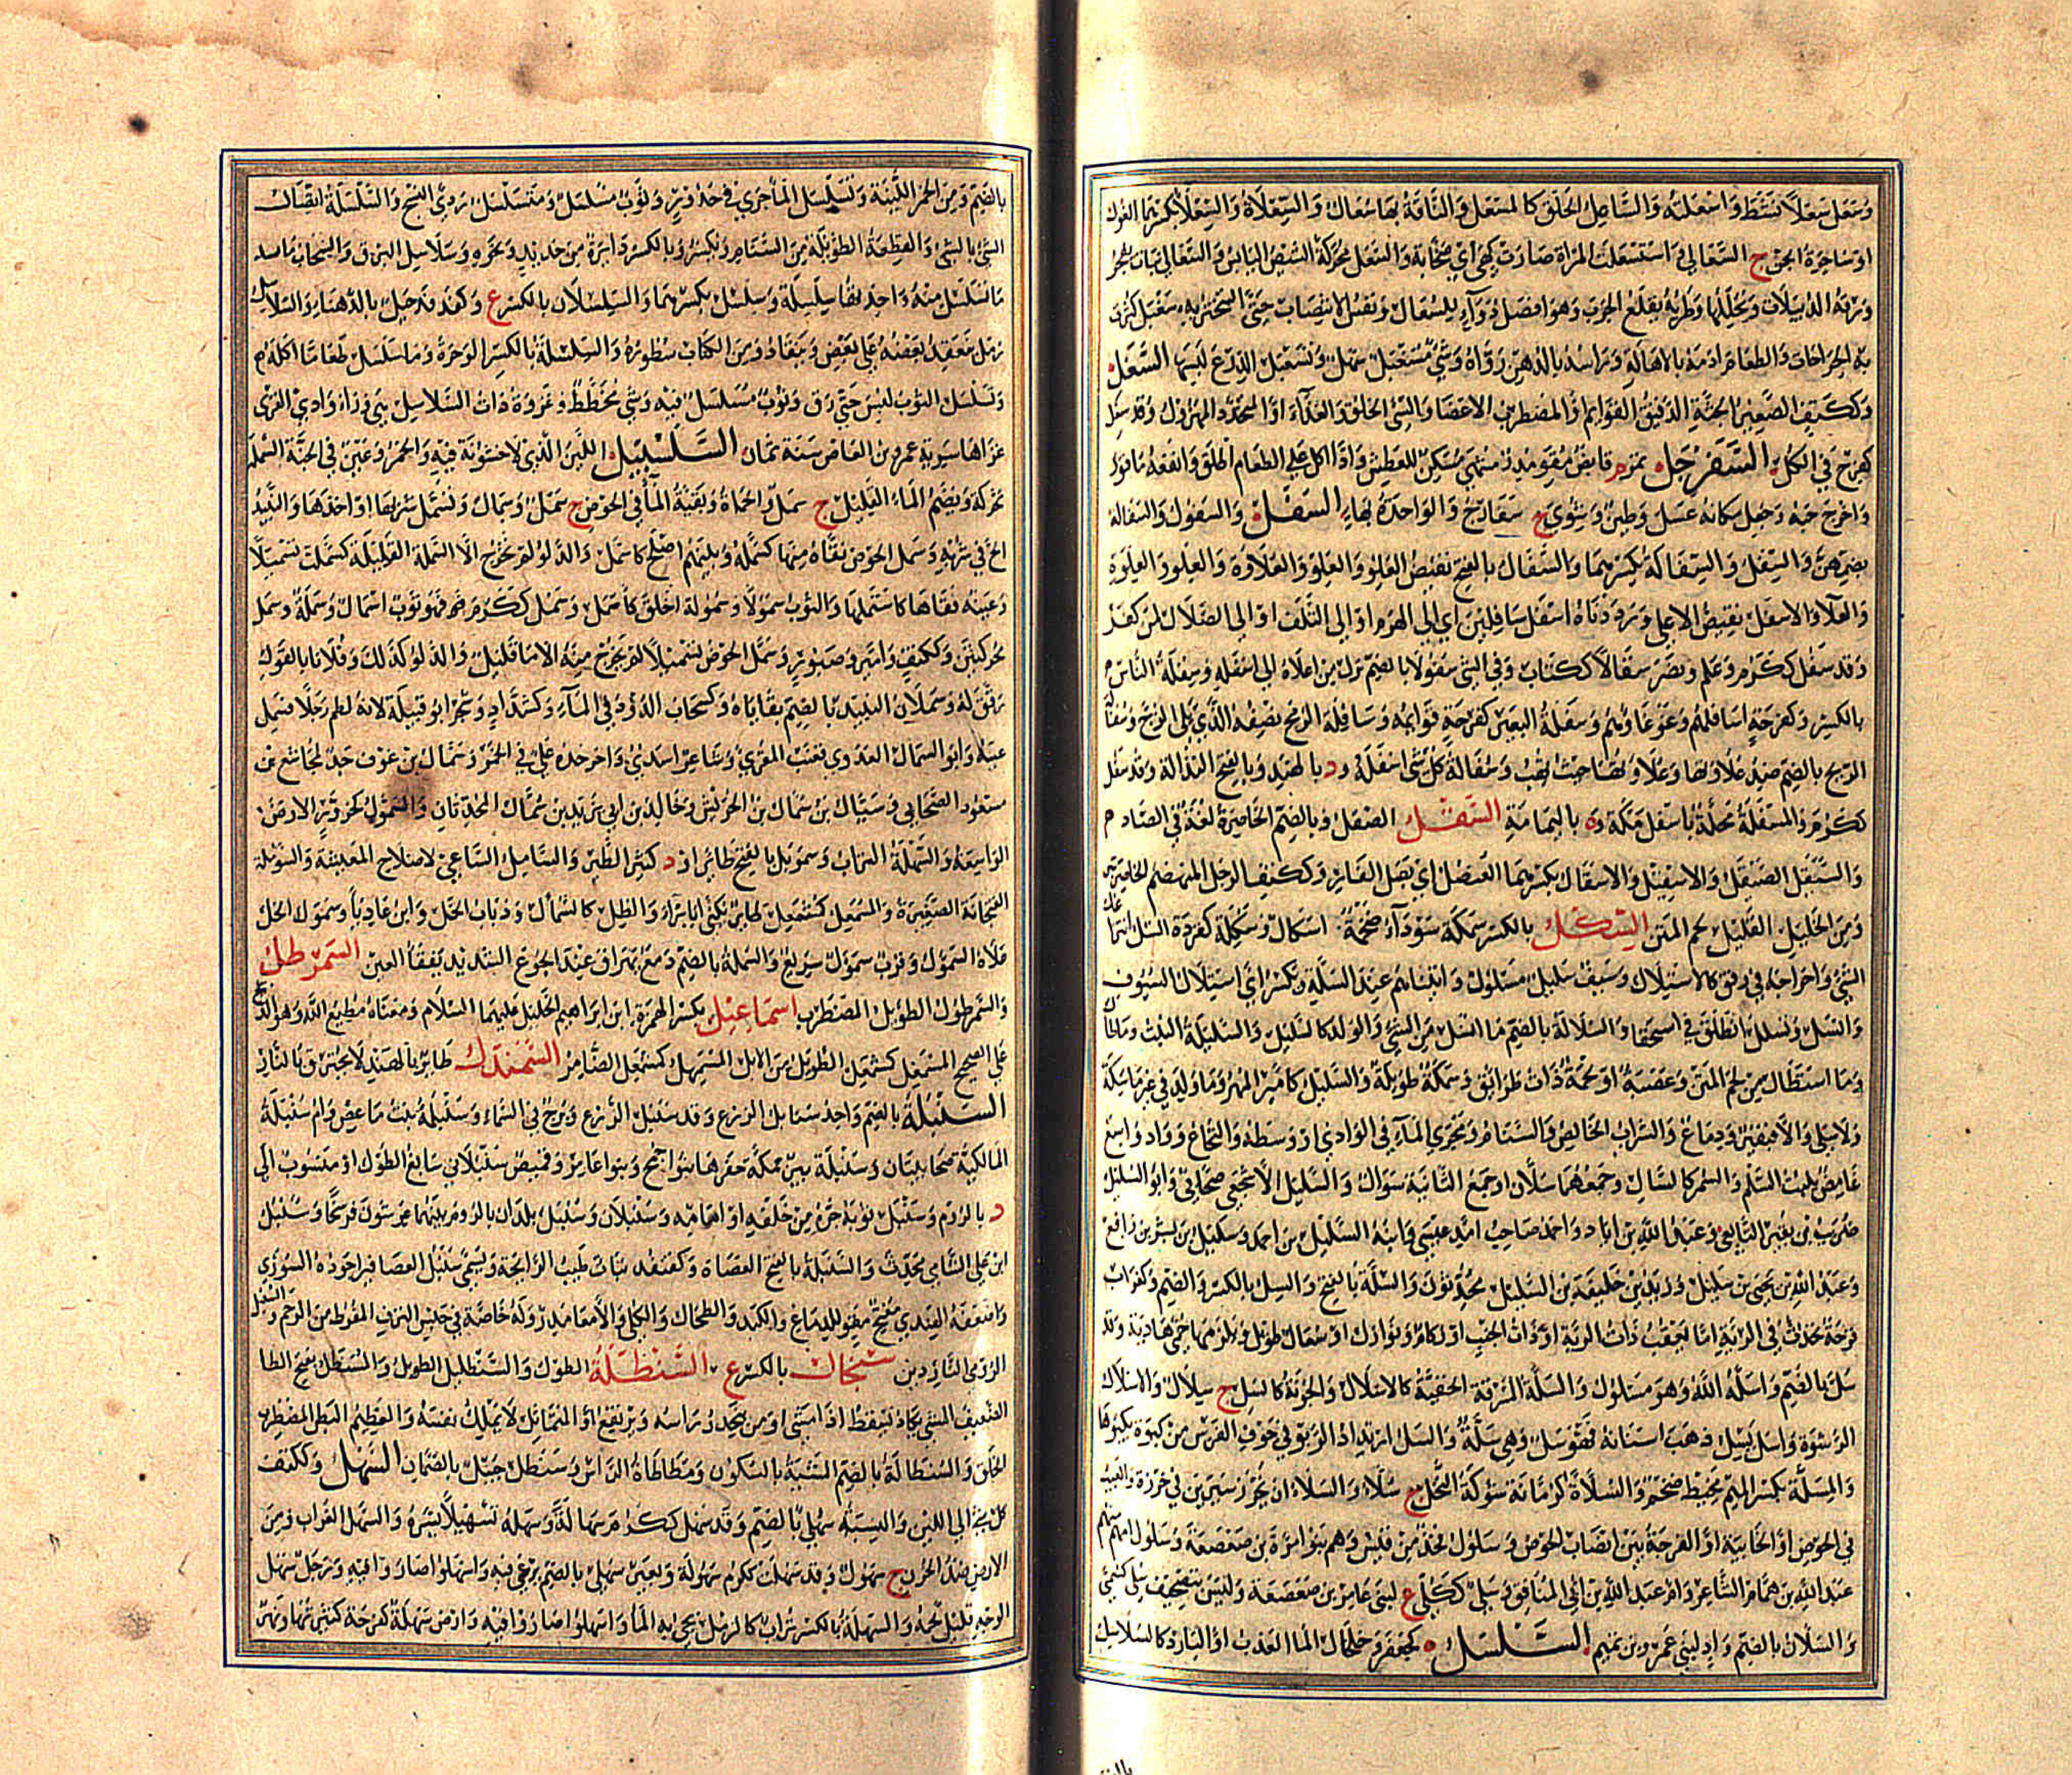 وسعل سعلا نشط واسعلته والساعل الحلق كالمسعل والناقة بها سعال والسعلاة والسعلا بكسرهما الغول
او ساحرة الجن ج السعالي واستسعلت المراة صارت كهي اي صخابة والسعل محركة الشيص اليابس والسعالي نبات يفجر
ورقه الدبيلات ويحللها وطريه يقلع الجرب وهو افضل دواء للسعال ونفس الانتصاب حتى التبخر به سغبل
به الجراحات والطعام ادمه بالاهالة وراسه بالدهن رواه وشي مسغبل سهل وتسغبل الدرع لبسها السغل
وككتف الصغير الجثة الدقيق القوائم او المضطرب الاعضا والسيئ الخلق والغذاء او المتخدد المهزول وقد سغل
كفرح في الكل السفرجل ثمر م قابض مقو مدر مشه مسكن للعطش واذا اكل على الطعام اطلق وانفعه ما قور
واخرج حبه وجعل مكانه عسل وطين وشوي ج سفارج والواحدة بهاء السفل والسفول والسفالة
بضمهن والسفل والسفالة بكسرهما والسفال بالفتح نقيض العلو والعلو والعلاوة والعلو والعلوة
والعلا والاسفل نقيض الاعلى ورددناه اسفل سافلين اي الى الهرم او الى التلف او الى الضلال لمن كفر
وقد سفل ككرم وعلم ونصر سفالا ككتاب وفي الشي سفولا بالضم نزل من اعلاه الى اسفله وسفلة الناس
بالكسر وكفرحة اسافلهم وغوغاؤهم وسفلة البعير كفرحة قوائمه وسافلة الرمح نصفه الذي يلي الزج وسفالة
الريح بالضم ضد علاوتها وعلاوتها حيث تهب وسفالة كل شي اسفله ود بالهند وبالفتح النذالة وقد سفل
ككرم والمسفلة محلة باسفل مكة وة باليمامة السقل الصقل وبالضم الخاصرة لغة في الصاد م
والسيقل الصيقل والاسقيل والاسقال بكسرهما العنصل اي بصل الفار وككتف الرجل المنهضم الخاصرتين
ومن الخيل القليل لحم المتن السكل بالكسر سمكة سوداء ضخمة اسكال وسكلة كقردة السل انتزاعك
الشي واخراجه في رفق كالاستلال وسيف سليل مسلول واتيناهم عند السلة وتكسر اي استلال السيوف
وانسل وتسلل انطلق في استخفا والسلالة بالضم ما انسل من الشي والولد كالسليل والسليلة البنت
وما استطال من لحم المتن وعقبة او لحمة ذات طرائق وسمكة طويلة والسليل كامير المهر وما ولد في غير ماسكة
ولا سلى والا فبقير ودماغ والشراب الخالص والسنام ومجرى الماء في الوادي او وسطه والنخاع وواد واسع
غامض ينبت السلم والسمر كالسال وجمعهما سلان او جمع الثانية سوال والسليل الاشجعي صحابي وابو السليل
ضريب بن نقير التابعي وعبد الله بن اياد واحمد صاحب عيسى وابنه السليل بن احمد وسليل بن بشر بن رافع
وعبد الله بن يحيى بن سليل وزيد بن خليفة بن السليل محدثون والسلة بالفتح والسل بالكسر والضم وكغراب
قرحة تحدث في الرئة اما تعقب ذات الرئة او ذات الجنب او زكام ونوازل او سعال طويل وتلزمها حمى هادية وقد
سل بالضم واسله الله وهو مسلول والسلة السرقة الخفية كالاسلال والجونة كالسل ج سلال والاسلال
الرشوة واسل يسل ذهب اسنانه فهو سل وهي سلة والسل ارتداد الربو في جوف الفرس من كبوة يكبوها
والمسلة بكسر الميم مخيط ضخم والسلاة كرمانة شوكة النخل ج سلاء والسلة ان تخرز سيرين في خرزة والعيب
في الحوض او الخابية او الفرجة بين انصاب الحوض وسلول فخذ من قيس وهم بنو مرة بن صعصعة وسلول امهم منهم
عبد الله بن همام الشاعر وام عبد الله بن ابي المنافق وسلي ككلي ع لبني عامر بن صعصعة وليس بتصحيف
والسلان بالضم واد لبني عمرو بن تميم السلسل ه كجعفر وخلخال الما العذب او البارد كالسلاسل
بالضم ومن الخمر اللينة وتسلسل الما جرى في حدور وثوب مسلسل ومتسلسل ردي النسج والسلسلة اتصال
الشي بالشي والقطعة الطويلة من السنام وتكسر وبالكسر دائرة من حديد ونحوه وسلاسل البرق والسحاب ما
تسلسل منه واحدها سلسلة وسلسل بكسرهما والسلسلان بالكسر ع وكهدهد جبل بالدهناء والسلاسل
رمل متعقد بعضه على بعض وينقاد ومن الكتاب سطوره والسلسلة بالكسر الوحرة وما سلسل طعاما ما اكله م
وتسلسل الثوب لبس حتى رق وثوب مسلسل فيه وشي مخطط وغزوة ذات السلاسل هي ورا وادي القرى
غزاها سرية عمرو بن العاص سنة ثمان السلسبيل اللين الذي لا خشونة فيه والخمر وعين في الجنة السملة
محركة ويضم الماء القليل ج سمل والحماة وبقية الما في الحوض ج سمل وسمال وتسمل شربها او اخذها والنبيذ
الح في شربه وسمل الحوض نقاه منها كسمله وبينهم اصلح كاسمل والدلو لم تخرج الا السملة القليلة كسملت تسميلا
وعينه فقاها كاستملها والثوب سمولا وسمولة اخلق كاسمل وسمل ككرم فهو ثوب اسمال وسملة وسمل
محركتين وككتف وامير وصبور وسمل الحوض تسميلا لم يخرج منه الا ما قليل والدلو كذلك وفلانا بالقول
رقق له وسملان النبيذ بالضم بقاياه وكسحاب الدود في الماء وكشداد وشجر ابو قبيلة لانه لطم رجلا فسمل
عينه وابو السمال العدوي قعنب المقري وشاعر اسدي واخر حده علي في الخمر وسمال بن عوف جد لمجاشع بن
مسعود الصحابي وسيال بن سمال بن الحريش وخالد بن ابي يزيد بن سمال المحدثان والسمول كحزور الارض
الواسعة والسملة التراب وسمويل بالفتح طائر او د كثير الطير والسامل الساعي لاصلاح المعيشة والسوملة
الفنجانة الصغيرة والمسمئل كمشمعل يكنى ابا براء والظل كالسمال وذباب الخل وابن عادياء وسمول الخل
علاه السمول وقرب سمول سريع والسملة بالضم دمع يهراق عند الجوع الشديد يفقا العين السمرطل
والسمرطول الطويل المضطرب اسماعيل بكسر الهمزة ابن ابراهيم الخليل عليهما السلام ومعناه مطيع الله وهو الذبيح
على الصحيح المسمغل كمشمعل الطويل من الابل المسمهل كمشمعل الضامر السمندل طائر بالهند لا يحترق بالنار
السنبلة بالضم واحد سنابل الزرع وقد سنبل الزرع وبرج في السماء وسنبلة بنت ماعص وام سنبلة
المالكية صحابيتان وسنبلة بير بمكة حفرها بنو جمح وبنو عامر وقميص سنبلاني سابغ الطول او منسوب الى
د بالروم وسنبل ثوبه جره من خلفه او امامه وسنبلان وسنبل بلدان بالروم بينهما عشرون فرسخا وسنبل
ابن علي الشامي محدث والسنبلة بالفتح العضاة وكقنفذ نبات طيب الرائحة ويسمى سنبل العصافير اجوده السوري
واضعفه الهندي مفتح مقو للدماغ والكبد والطحال والكلى والامعا مدر وله خاصة في حبس النزف المفرط من الرحم والسنبل
الرومي الناردين سنجال بالكسر ع السنطلة الطول والسنطليل الطويل والمسنطل بفتح الطا
الضعيف المشي يكاد يسقط اذا مشى او من يحدر راسه ويرتفع او المتمايل لا يملك نفسه والعظيم البطن المضطرب
الخلق والسنطالة بالضم المشية بالسكون ومطاطاة الراس وسنطل جبل بالصمان السهل وككتف
كل شي الى اللين والنسبة سهلي بالضم وقد سهل ككرم سهالة وسهله تسهيلا يسره والسهل الغراب ومن
الارض ضد الحزن ج سهول وقد سهلت ككرم سهولة وبعير سهلي بالضم يرعى فيه واسهلوا صاروا فيه ورجل سهل
الوجه قليل لحمه والسهلة بالكسر تراب كالرمل يجي به الما واسهلوا صاروا فيه وارض سهلة كفرحة كثيرتها ونهر